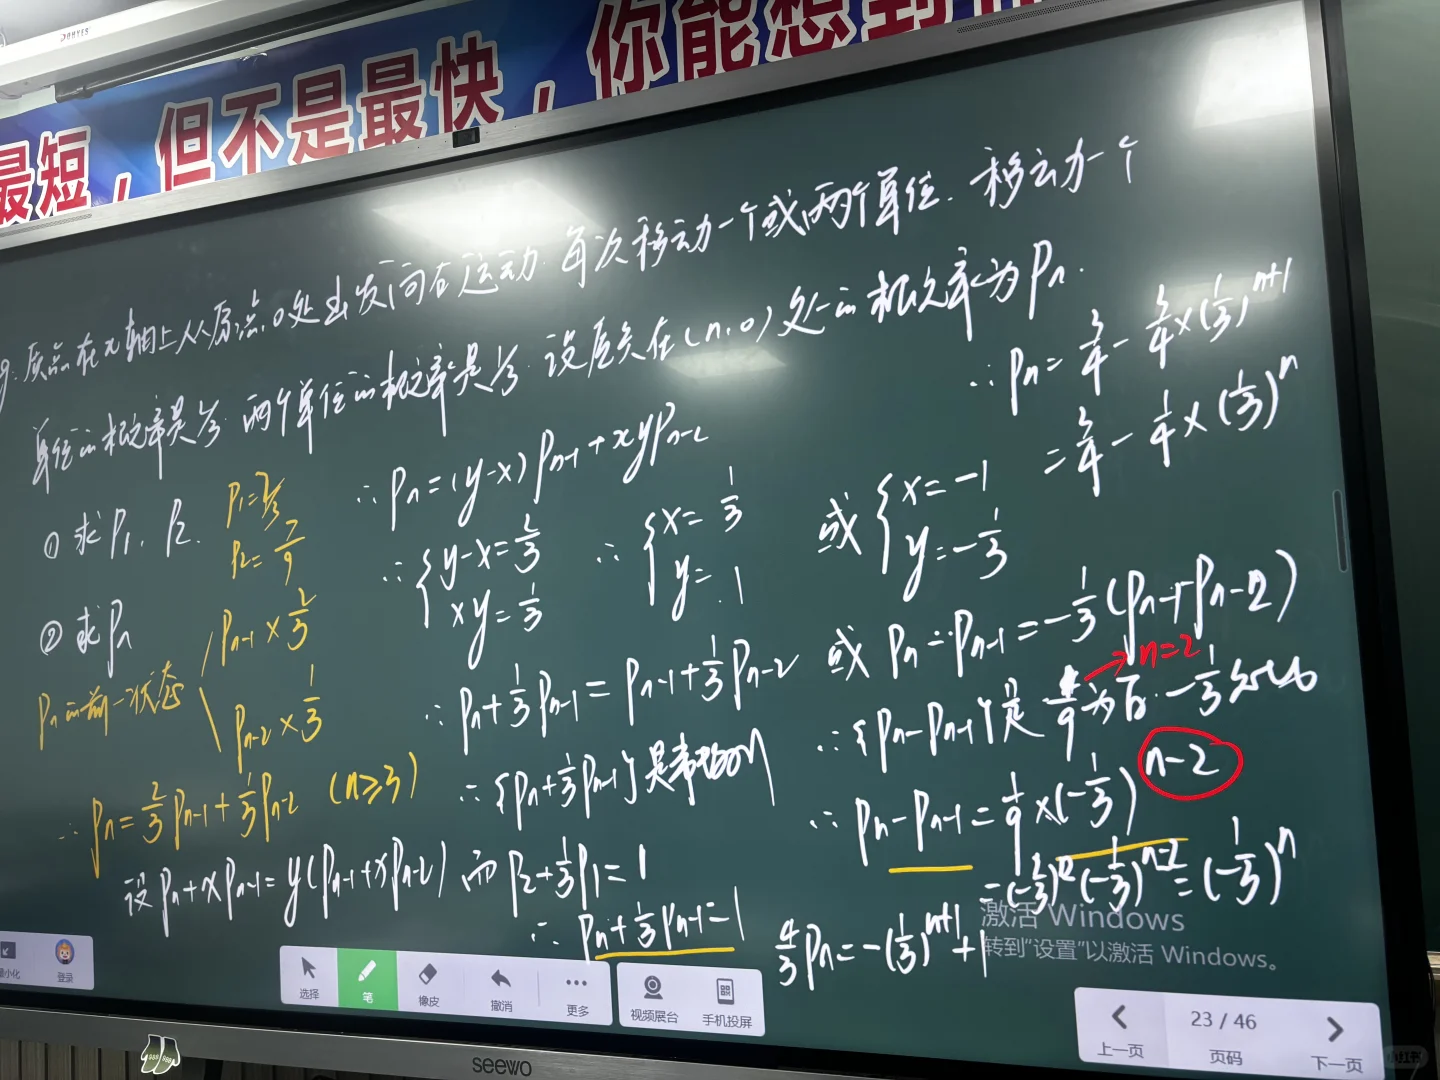 DONYES
最短，但不是最快，你能想到
质点在x轴上从原点0处出发向右运动.每次移动一个或两个单位.移动一个
单位的概率是⅔.两个单位的概率是⅓.设质点在(n,0)处的概率为Pn.
① 求P1、P2.
P1=2/3
P2=7/9
② 求Pn
Pn的前一状态
Pn-1×2/3
Pn-2×1/3
∴ Pn=2/3Pn-1+1/3Pn-2 (n≥3)
设Pn+xPn-1=y(Pn-1+xPn-2)
∴ Pn=(y-x)Pn-1+xyPn-2
∴ {y-x=2/3
xy=1/3
∴ {x=1/3
y=1
或 {x=-1
y=-1/3
∴ Pn+1/3Pn-1=Pn-1+1/3Pn-2
或 Pn-Pn-1=-1/3(Pn-1-Pn-2)
∴ {Pn+1/3Pn-1}是常数列
而P2+1/3P1=1
∴ Pn+1/3Pn-1=1
n=2
∴ {Pn-Pn-1}是1/9为首.-1/3为公比
∴ Pn-Pn-1=1/9×(-1/3)^n-2
=(-1/3)^2(-1/3)^n-2=(-1/3)^n
4/3Pn=-(1/3)^n+1+1
∴ Pn=3/4-3/4×(1/3)^n+1
=3/4-1/4×(1/3)^n
激活 Windows
转到"设置"以激活 Windows。
最小化
登录
选择
笔
橡皮
撤消
更多
视频展台
手机投屏
上一页
23 / 46
页码
下一页
seewo
小红书